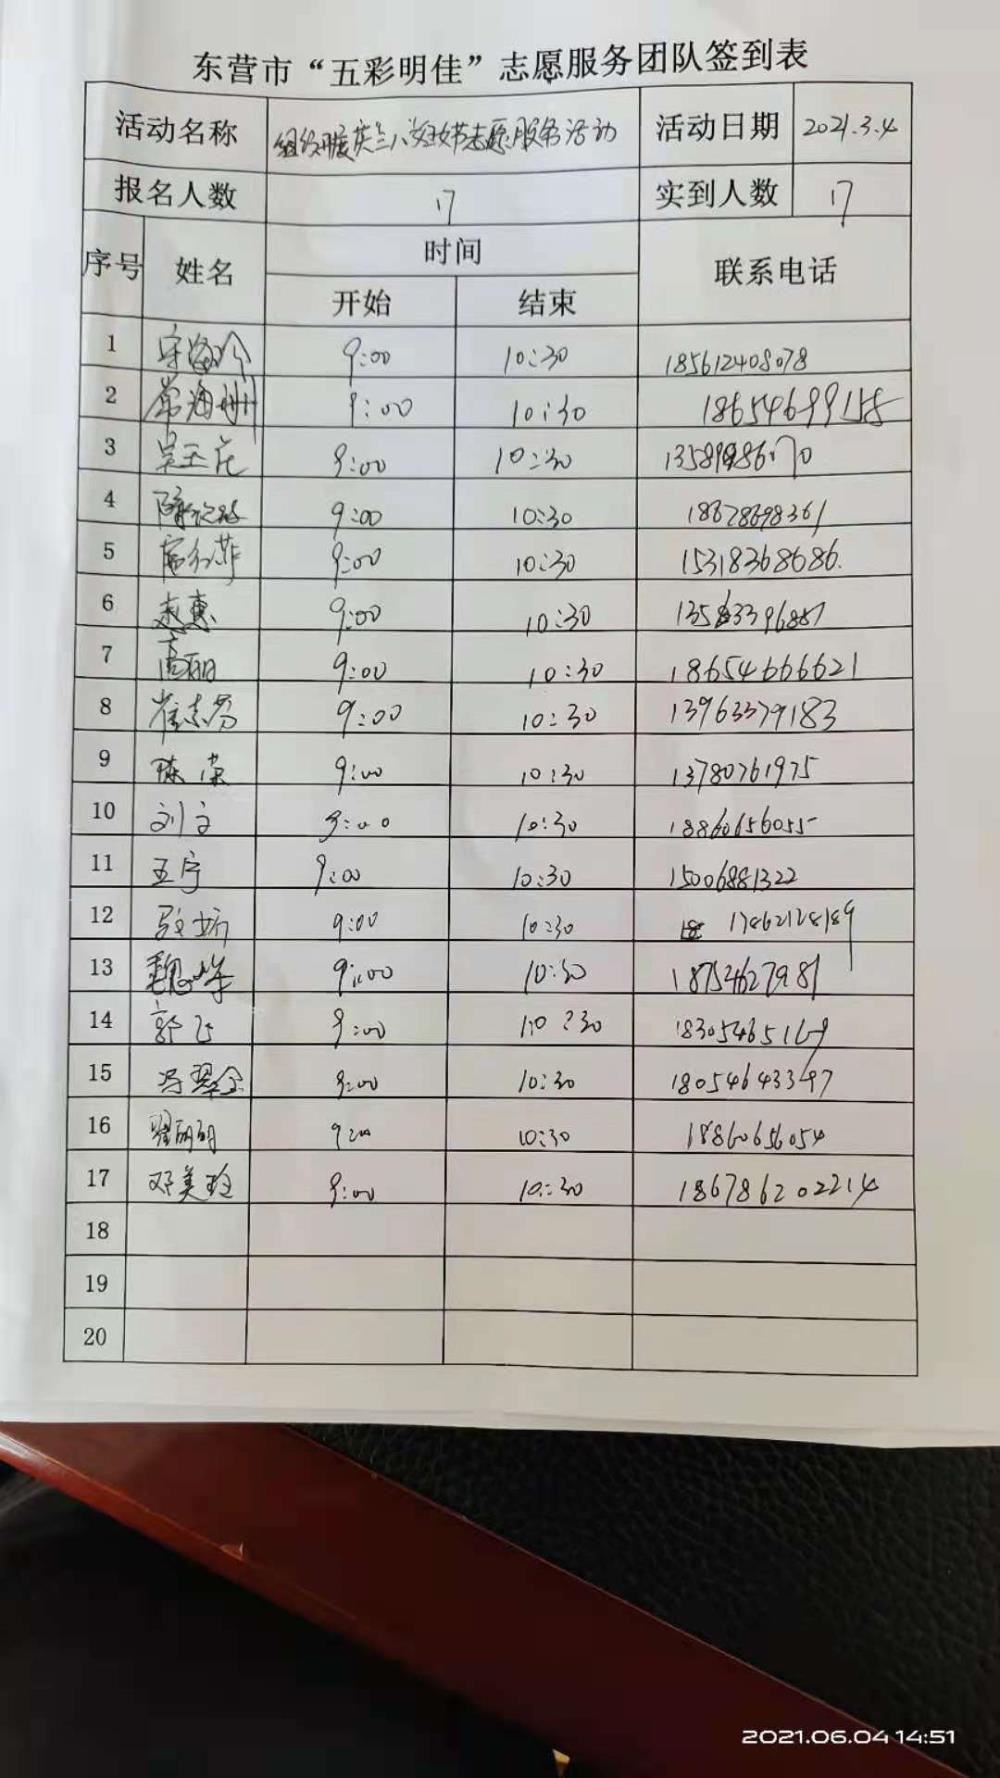 东营市“五彩明佳”志愿服务团队签到表
活动名称 庆三八妇女节志愿服务活动 活动日期 2021.3.4
报名人数 17 实到人数 17
序号 姓名 时间 联系电话
开始 结束
1 9:00 10:30 185612408078
2 常海州 9:00 10:30 18654699158
3 9:00 10:30
4 9:00 10:30 18678698361
5 9:00 10:30 15318368686.
6 赵惠 9:00 10:30
7 高丽 9:00 10:30 18654666621
8 崔志芳 9:00 10:30 13963379183
9 陈荣 9:00 10:30 13780761975
10 刘文 9:00 10:30 18860656055
11 王宁 9:00 10:30 15006881322
12 9:00 10:30 17862128189
13 魏峰 9:00 10:30 18754627981
14 郭飞 9:00 10:30 18305465169
15 冯翠金 9:00 10:30 18054643397
16 翟丽丽 9:00 10:30 18860656054
17 邓美玲 9:00 10:30 186786202214
18
19
20
2021.06.04 14:51